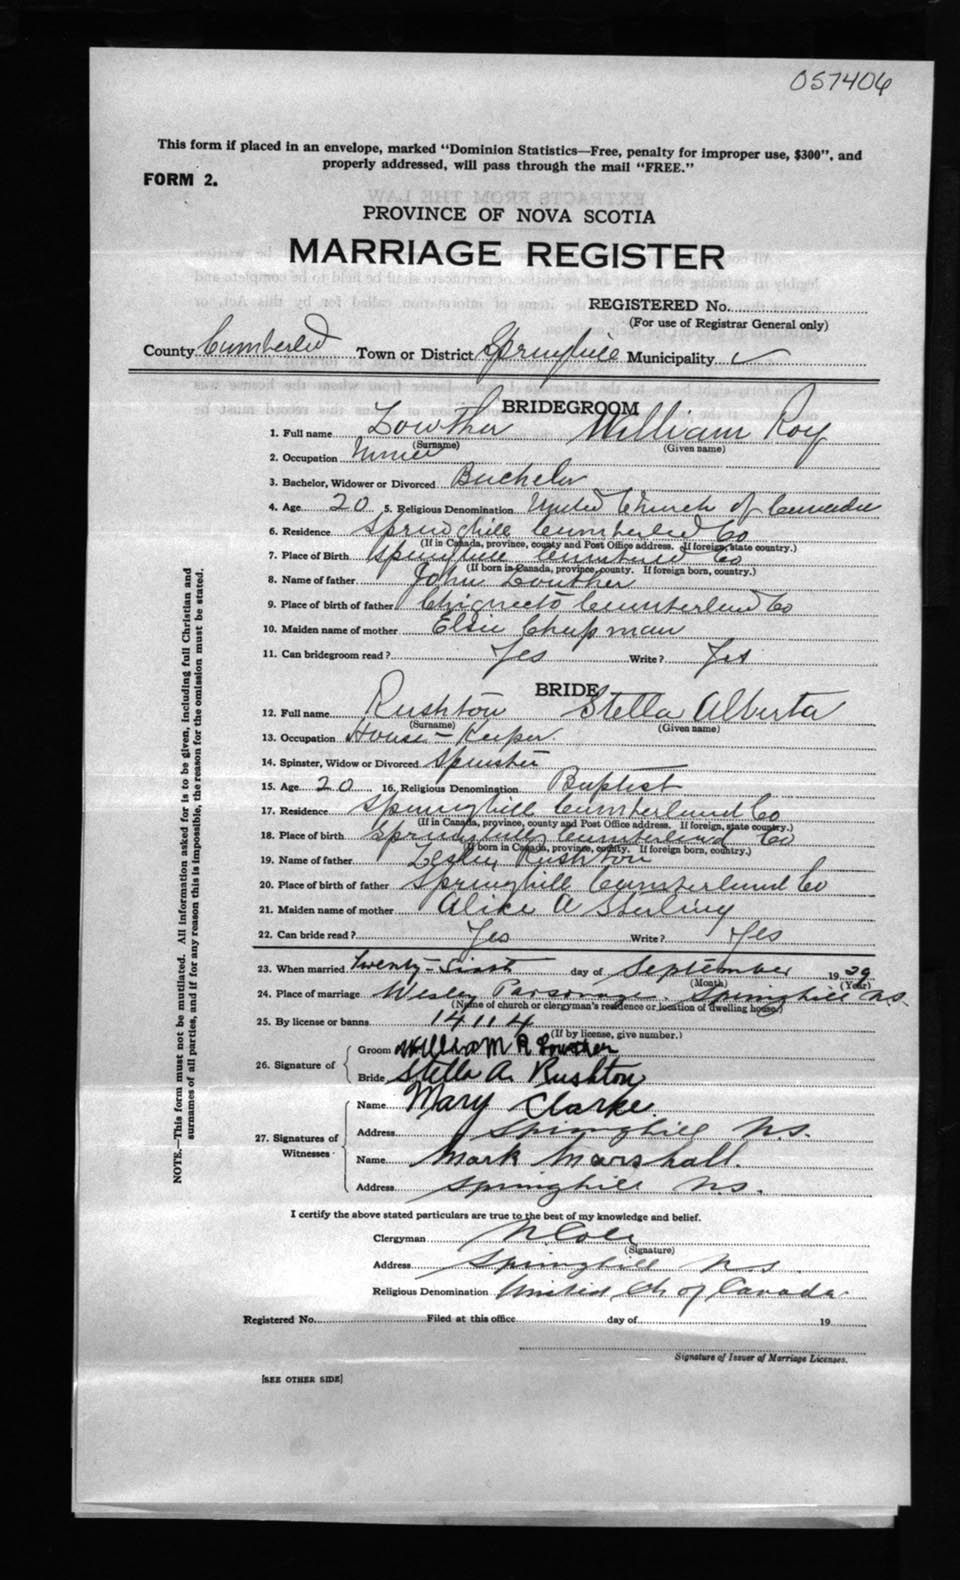 057406
This form if placed in an envelope, marked "Dominion Statistics—Free, penalty for improper use, $300", and
properly addressed, will pass through the mail "FREE."
FORM 2.
PROVINCE OF NOVA SCOTIA
MARRIAGE REGISTER
REGISTERED No.
(For use of Registrar General only)
County Cumberled Town or District Springhill Municipality
BRIDEGROOM
1. Full name Lowther William Roy
(Surname) (Given name)
2. Occupation Miner
3. Bachelor, Widower or Divorced Bachelor
4. Age 20 5. Religious Denomination United Church of Canada
6. Residence Springhill Cumberled Co
(If in Canada, province, county and Post Office address. If foreign, state country.)
7. Place of Birth Springhill Cumberled Co
(If born in Canada, province, county. If foreign born, country.)
8. Name of father John Lowther
9. Place of birth of father Chignecto Cumberland Co
10. Maiden name of mother Elsie Chapman
11. Can bridegroom read? Yes Write? Yes
BRIDE
12. Full name Rushton Stella Alberta
(Surname) (Given name)
13. Occupation House-Keeper
14. Spinster, Widow or Divorced Spinster
15. Age 20 16. Religious Denomination Baptist
17. Residence Springhill Cumberland Co
(If in Canada, province, county and Post Office address. If foreign, state country.)
18. Place of birth Springhill Cumberland Co
(If born in Canada, province, county. If foreign born, country.)
19. Name of father Lesley Rushton
20. Place of birth of father Springhill Cumberland Co
21. Maiden name of mother Alice A Sterling
22. Can bride read? Yes Write? Yes
23. When married Twenty-Sixth day of September 1929
(Month) (Year)
24. Place of marriage Wesley Parsonage. Springhill N.S.
(Name of church or clergyman's residence or location of dwelling house.)
25. By license or banns 14114
(If by license, give number.)
26. Signature of Groom William R Lowther
Bride Stella A. Rushton
27. Signatures of Witnesses Name Mary Clarke
Address Springhill N.S.
Name Mark Marshall.
Address Springhill N.S.
I certify the above stated particulars are true to the best of my knowledge and belief.
Clergyman
(Signature)
Address Springhill N.S.
Religious Denomination United Ch of Canada
Registered No. Filed at this office day of 19
Signature of Issuer of Marriage Licenses.
[SEE OTHER SIDE]
NOTE.—This form must not be mutilated. All information asked for is to be given, including full Christian and
surnames of all parties, and if for any reason this is impossible, the reason for the omission must be stated.